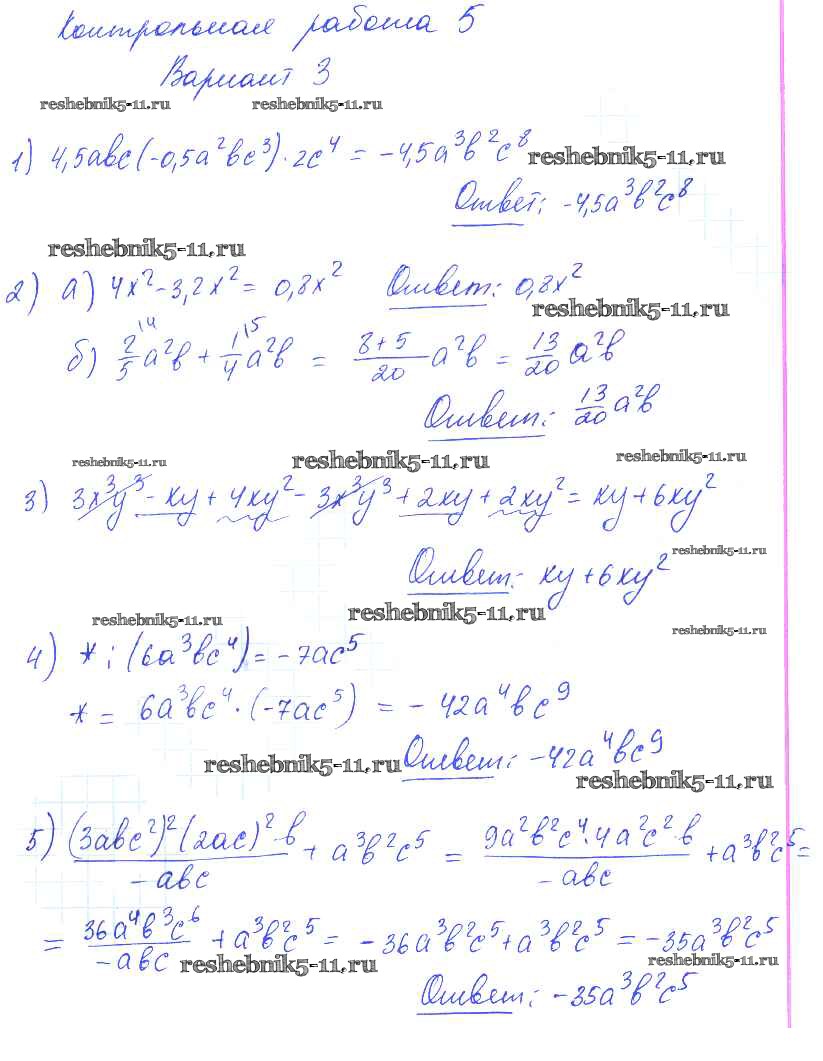 Контрольная работа 5
Вариант 3
reshebnik5-11.ru reshebnik5-11.ru
1) 4,5abc(-0,5a²bc³)·2c⁴ = -4,5a³b²c⁸ reshebnik5-11.ru
Ответ: -4,5a³b²c⁸
reshebnik5-11.ru
2) а) 4x²-3,2x² = 0,8x² Ответ: 0,8x²
reshebnik5-11.ru
б) 2/5\4 a²b + 1/4\5 a²b = (8+5)/20 a²b = 13/20 a²b
Ответ: 13/20 a²b
reshebnik5-11.ru reshebnik5-11.ru reshebnik5-11.ru
3) 3x³y³ - xy + 4xy² - 3x³y³ + 2xy + 2xy² = xy + 6xy²
reshebnik5-11.ru
Ответ: xy + 6xy²
reshebnik5-11.ru reshebnik5-11.ru reshebnik5-11.ru
4) * : (6a³bc⁴) = -7ac⁵
* = 6a³bc⁴·(-7ac⁵) = -42a⁴bc⁹
reshebnik5-11.ru Ответ: -42a⁴bc⁹
reshebnik5-11.ru
5) (3abc²)²(2ac)²·b/-abc + a³b²c⁵ = 9a²b²c⁴·4a²c²·b/-abc + a³b²c⁵ =
= 36a⁴b³c⁶/-abc + a³b²c⁵ = -36a³b²c⁵ + a³b²c⁵ = -35a³b²c⁵
reshebnik5-11.ru reshebnik5-11.ru
Ответ: -35a³b²c⁵